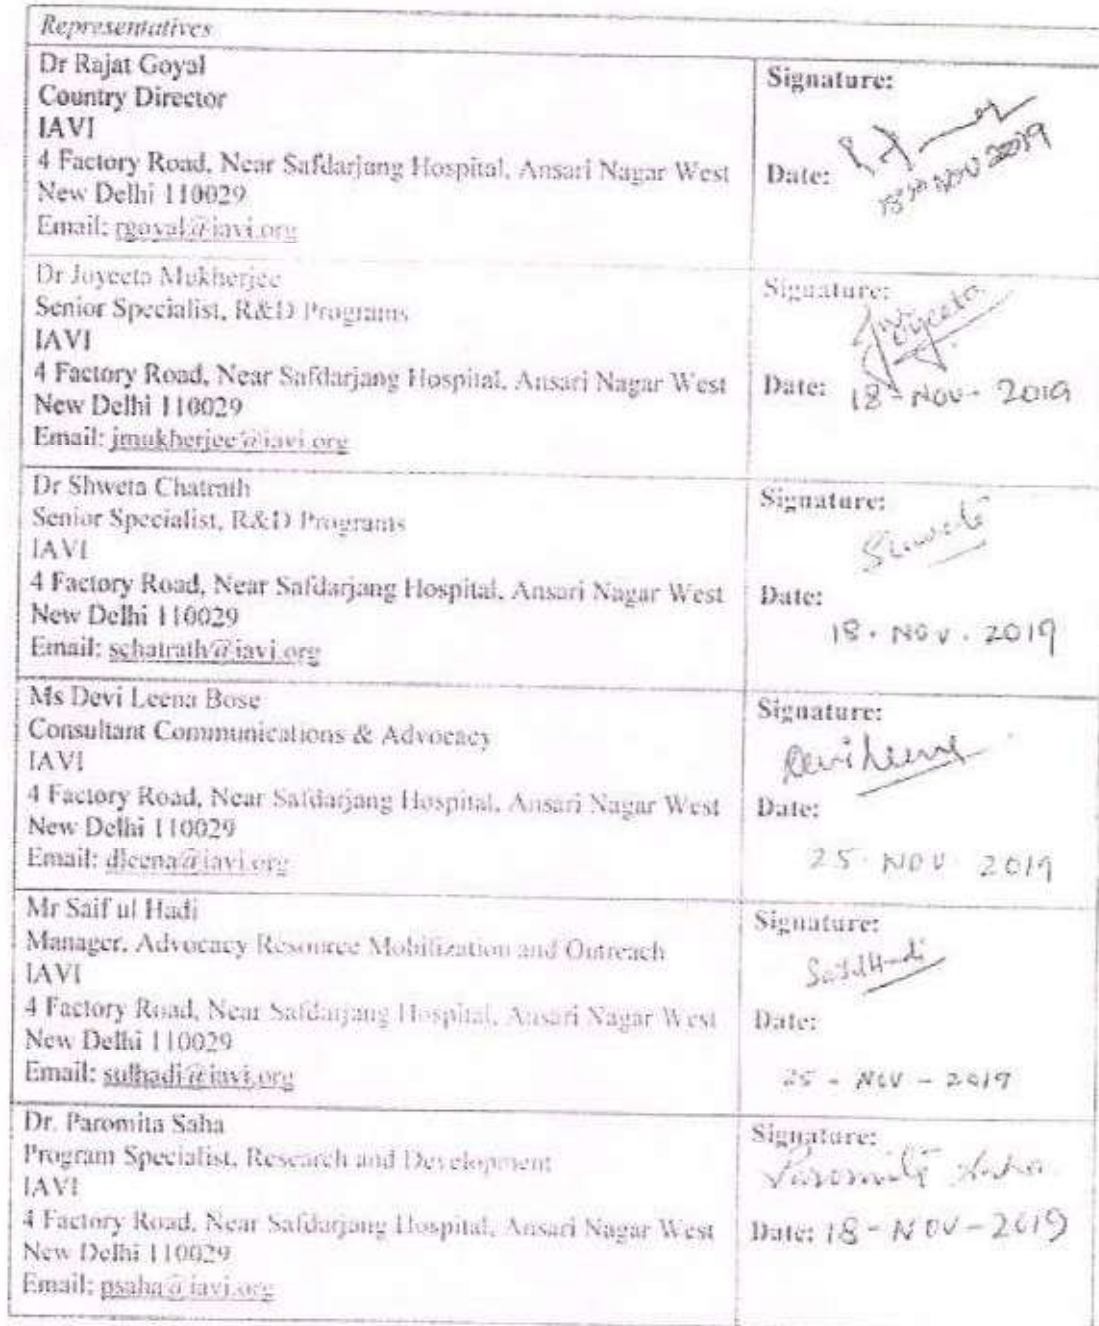 Representatives
Dr Rajat Goyal
Country Director
IAVI
4 Factory Road, Near Safdarjang Hospital, Ansari Nagar West
New Delhi 110029
Email: rgoyal@iavi.org
Signature:
Date: NOV 2019
Dr Joyeeta Mukherjee
Senior Specialist, R&D Programs
IAVI
4 Factory Road, Near Safdarjang Hospital, Ansari Nagar West
New Delhi 110029
Email: jmukherjee@iavi.org
Signature:
Joyeeta
Date: 18 - NOV - 2019
Dr Shweta Chatrath
Senior Specialist, R&D Programs
IAVI
4 Factory Road, Near Safdarjang Hospital, Ansari Nagar West
New Delhi 110029
Email: schatrath@iavi.org
Signature:
Shweta
Date:
18 . NOV . 2019
Ms Devi Leena Bose
Consultant Communications & Advocacy
IAVI
4 Factory Road, Near Safdarjang Hospital, Ansari Nagar West
New Delhi 110029
Email: dleena@iavi.org
Signature:
Devileena
Date:
25 . NOV . 2019
Mr Saif ul Hadi
Manager, Advocacy Resource Mobilization and Outreach
IAVI
4 Factory Road, Near Safdarjang Hospital, Ansari Nagar West
New Delhi 110029
Email: sulhadi@iavi.org
Signature:
Date:
25 - NOV - 2019
Dr. Paromita Saha
Program Specialist, Research and Development
IAVI
4 Factory Road, Near Safdarjang Hospital, Ansari Nagar West
New Delhi 110029
Email: psaha@iavi.org
Signature:
Paromita Saha
Date: 18 - NOV - 2019